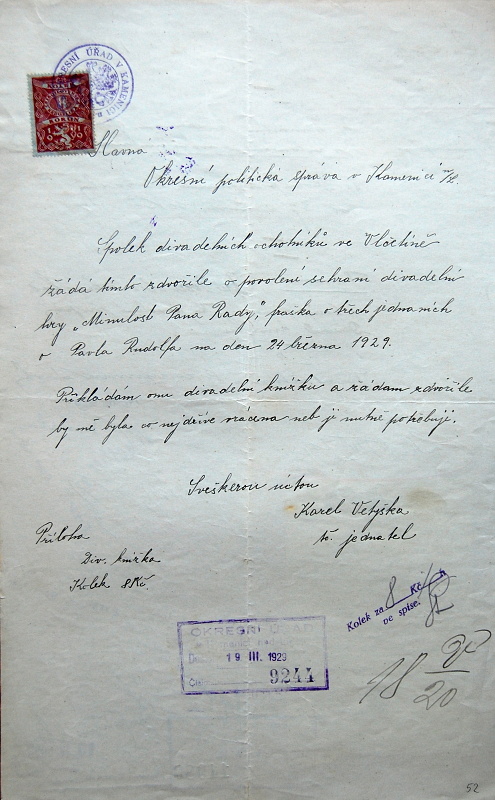 OKRESNÍ ÚŘAD V KAMENICI
KOLEK
Slavná
Okresní politická správa v Kamenici n/L.
Spolek divadelních ochotníků ve Včelničce
žádá tímto zdvořile o povolení sehrání divadelní
hry „Minulost Pana Rady", fraška o třech jednáních
o Pavla Rudolfa na den 24 března 1929.
Přikládám onu divadelní knížku a žádám zdvořile
by mě byla co nejdříve vrácena neb ji nutně potřebuji.
Sveškerou úctou
Karel Vetýška
tč. jednatel
Příloha
Div. knížka
Kolek 8Kč.
Kolek za 8 Kč h
ve spise.
OKRESNÍ ÚŘAD
Došlo 19 III. 1929
Číslo 9244
18
20
52